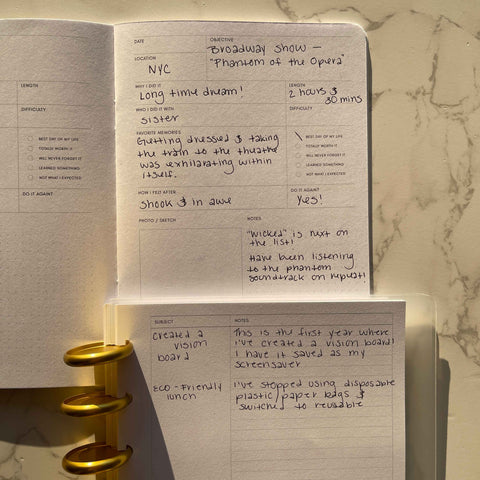 LENGTH
DIFFICULTY
BEST DAY OF MY LIFE
TOTALLY WORTH IT
WILL NEVER FORGET IT
LEARNED SOMETHING
NOT WHAT I EXPECTED
DO IT AGAIN?
DATE
OBJECTIVE
Broadway Show -
"Phantom of the Opera"
LOCATION
NYC
WHY I DID IT
Long time dream!
LENGTH
2 hours &
30 mins
WHO I DID IT WITH
sister
DIFFICULTY
FAVORITE MEMORIES
Getting dressed & taking
the train to the theathe
was exhilarating within
itself.
BEST DAY OF MY LIFE
TOTALLY WORTH IT
WILL NEVER FORGET IT
LEARNED SOMETHING
NOT WHAT I EXPECTED
HOW I FELT AFTER
shook & in awe
DO IT AGAIN?
Yes!
PHOTO / SKETCH
NOTES
"Wicked" is next on
the list!
Have been listening
to the phantom
soundtrack on repeat!
SUBJECT
NOTES
Created a
vision
board
This is the first year where
I've created a vision board!
I have it saved as my
screensaver
Eco-Friendly
lunch
I've stopped using disposable
plastic/paper bags &
switched to reusable